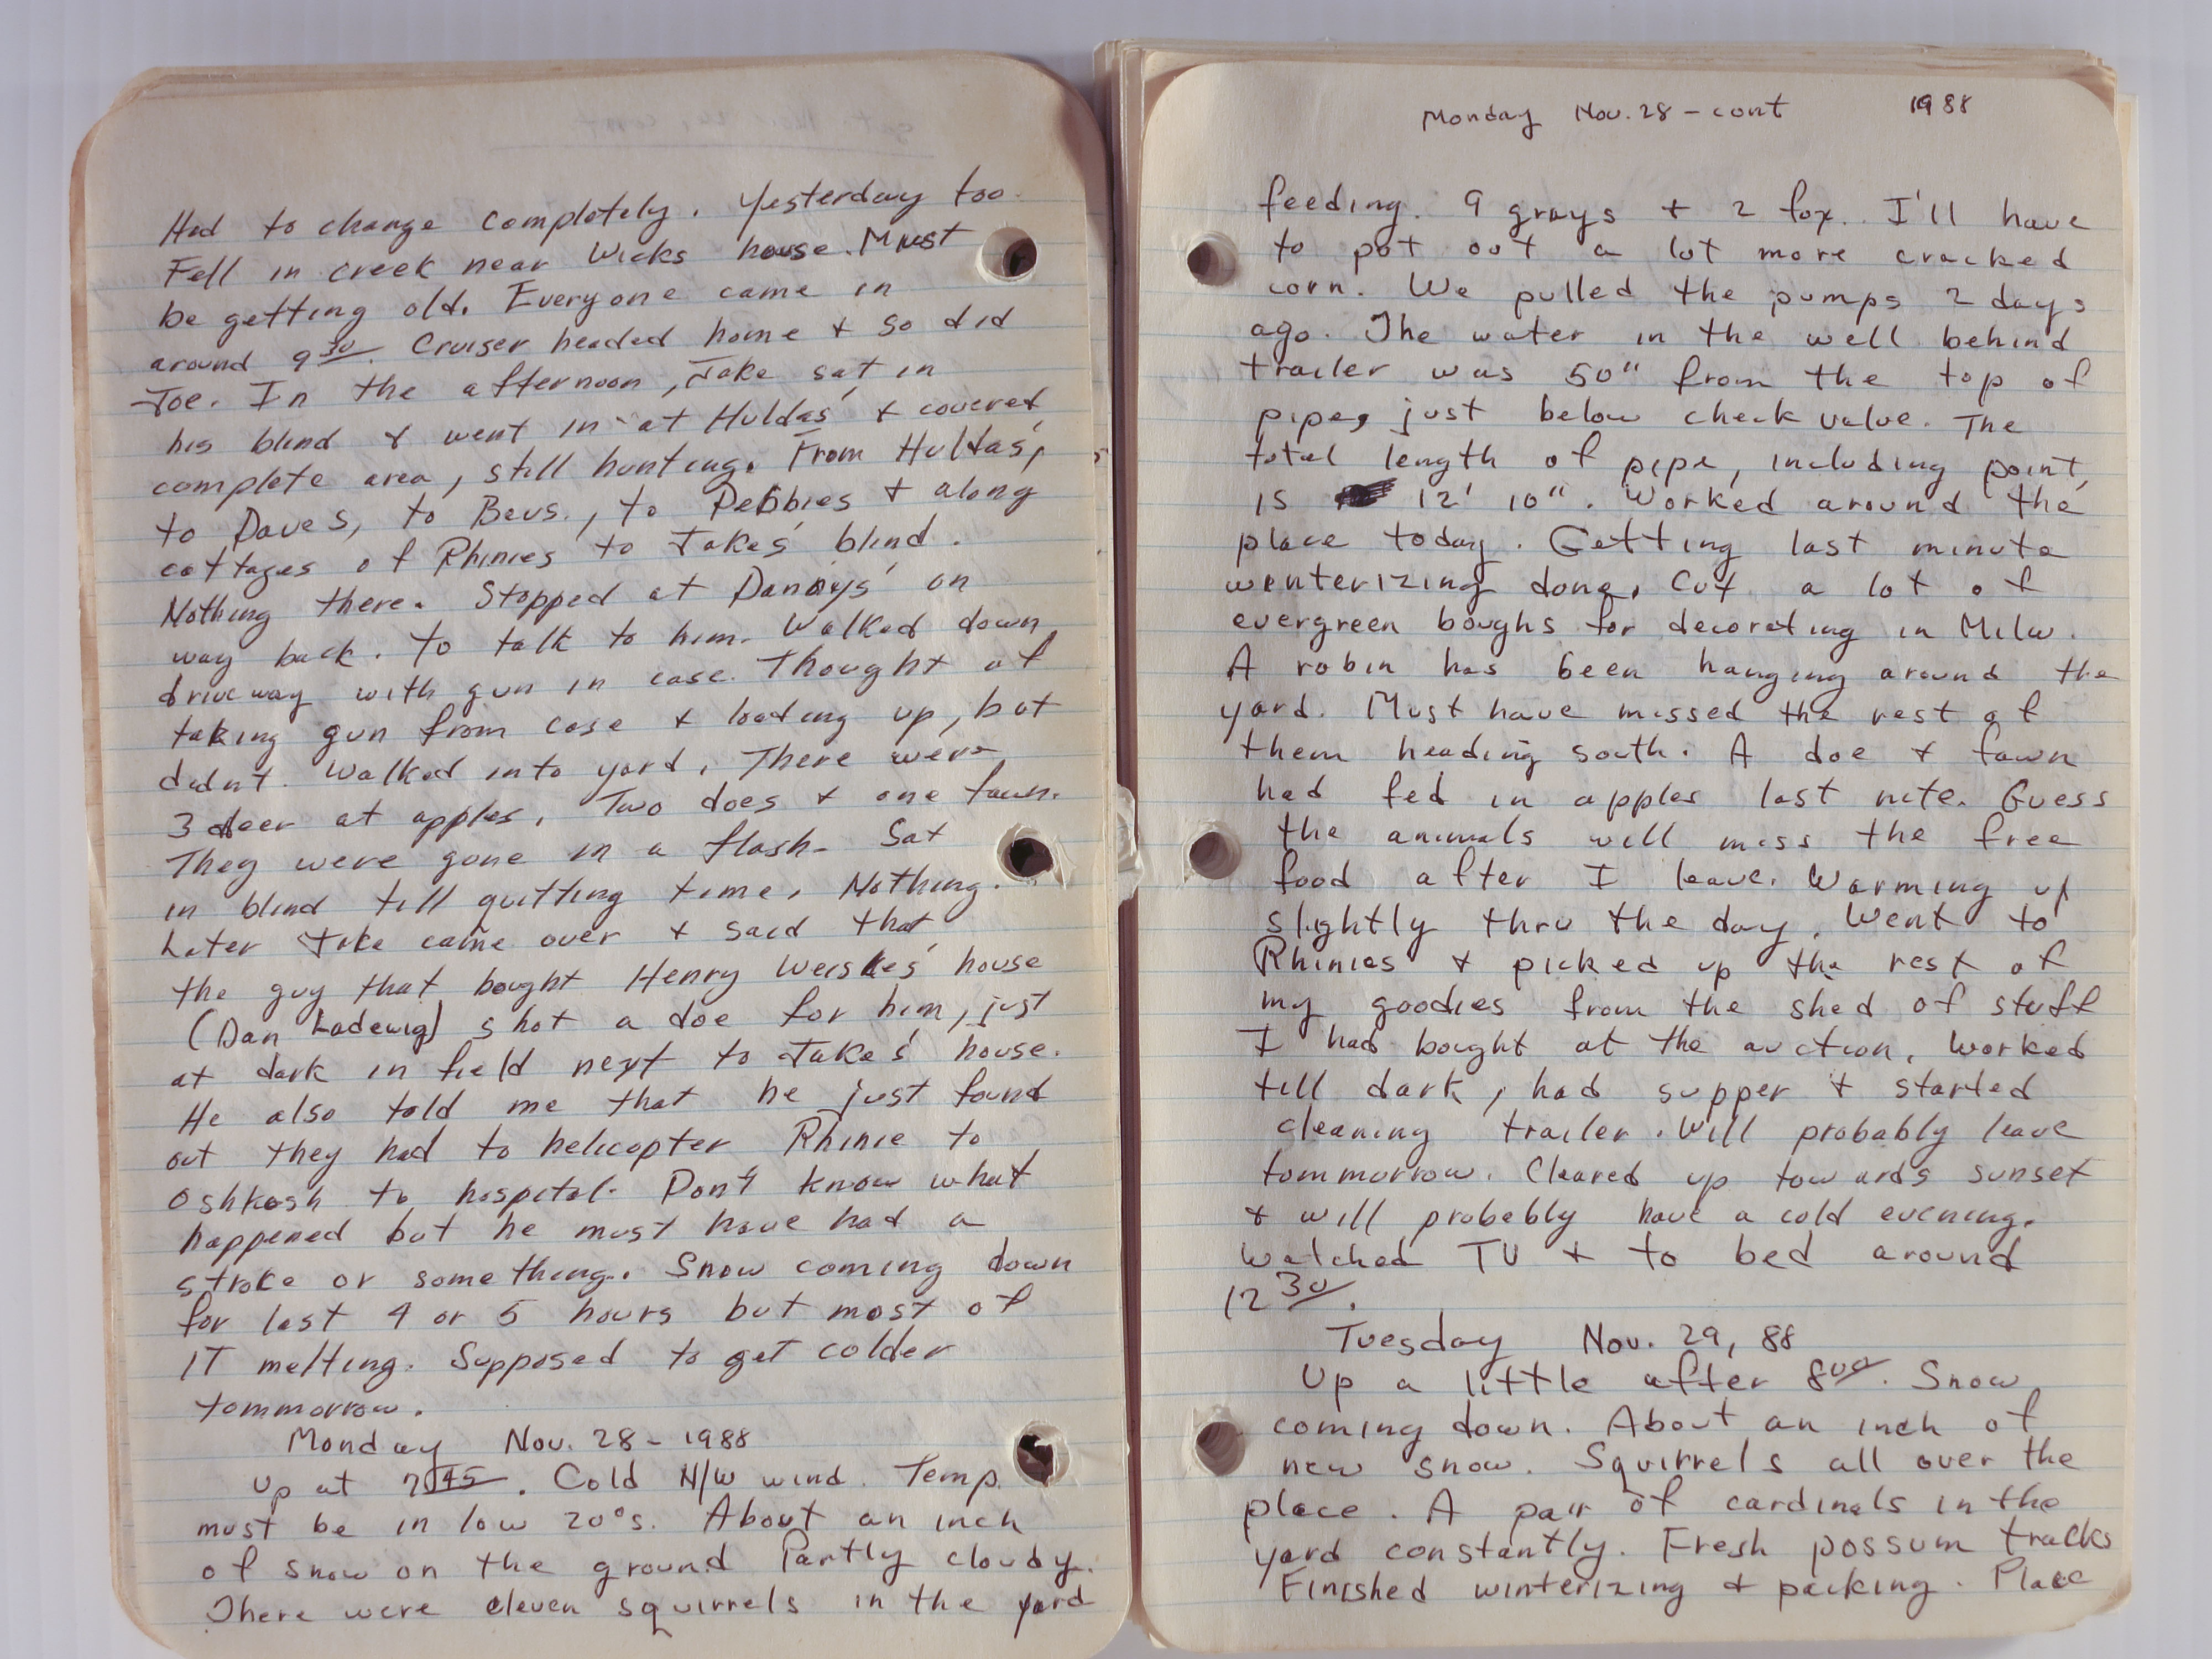 Had to change completely. Yesterday too.
Fell in creek near Wicks house. Must
be getting old. Everyone came in
around 9 30. Cruiser headed home + so did
Joe. In the afternoon, Jake sat in
his blind + went in at Huldas' + covered
complete area, still hunting. From Huldas',
to Daves, to Bevs., to Debbies + along
cottages of Rhinies to Jakes' blind.
Nothing there. Stopped at Dannys' on
way back. To talk to him. Walked down
driveway with gun in case. Thought of
taking gun from case + loading up, but
didn't. Walked into yard. There were
3 deer at apples. Two does + one fawn.
They were gone in a flash. Sat
in blind till quitting time. Nothing.
Later Jake came over + said that
the guy that bought Henry Weiskes' house
(Dan Ladewig) shot a doe for him, just
at dark in field next to Jake's house.
He also told me that he just found
out they had to helicopter Rhinie to
Oshkosh to hospital. Don't know what
happened but he must have had a
stroke or something. Snow coming down
for last 4 or 5 hours but most of
IT melting. Supposed to get colder
tommorrow.
Monday Nov. 28 - 1988
Up at 7 45. Cold N/W wind. Temp.
must be in low 20°s. About an inch
of snow on the ground Partly cloudy.
There were eleven squirrels in the yard
Monday Nov. 28 - cont 1988
feeding. 9 grays + 2 fox. I'll have
to put out a lot more cracked
corn. We pulled the pumps 2 days
ago. The water in the well behind
trailer was 50" from the top of
pipe, just below check valve. The
total length of pipe, including point,
is 12' 10". Worked around the
place today. Getting last minute
winterizing done. Cut a lot of
evergreen boughs for decorating in Milw.
A robin has been hanging around the
yard. Must have missed the rest of
them heading south. A doe + fawn
had fed in apples last nite. Guess
the animals will miss the free
food after I leave. Warming up
slightly thru the day. Went to
Rhinies + picked up the rest of
my goodies from the shed of stuff
I had bought at the auction. Worked
till dark, had supper + started
cleaning trailer. Will probably leave
tommorrow. Cleared up towards sunset
+ will probably have a cold evening.
Watched TV + to bed around
12 30.
Tuesday Nov. 29, 88
Up a little after 8 00. Snow
coming down. About an inch of
new snow. Squirrels all over the
place. A pair of cardinals in the
yard constantly. Fresh possum tracks
Finished winterizing + packing. Place